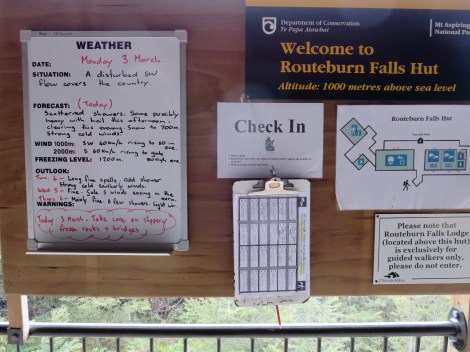 WEATHER
DATE: Monday 3 March
SITUATION: A disturbed SW
flow covers the country
FORECAST: (Today)
Scattered showers. Some possibly
heavy with hail this afternoon -
clearing this evening. Snow to 700m
Strong cold winds.
WIND 1000m: SW 60km/h rising to 80 in
2000m: S 60km/h rising to gale
FREEZING LEVEL: 1200m
OUTLOOK:
Tue 4 - Long fine spells, odd shower
strong cold southerly winds.
Wed 5 - Fine. Gale S winds easing in the
Thurs 6 - Mainly fine. A few showers, light
WARNINGS:
Today 3 March - Take care on slippery
frozen rocks & bridges
Department of Conservation
Te Papa Atawhai
Mt Aspiring
National Pa
Welcome to
Routeburn Falls Hut
Altitude: 1000 metres above sea level
Check In
Routeburn Falls Hut
Please note that
Routeburn Falls Lodge
(located above this hut)
is exclusively for
guided walkers only,
please do not enter.